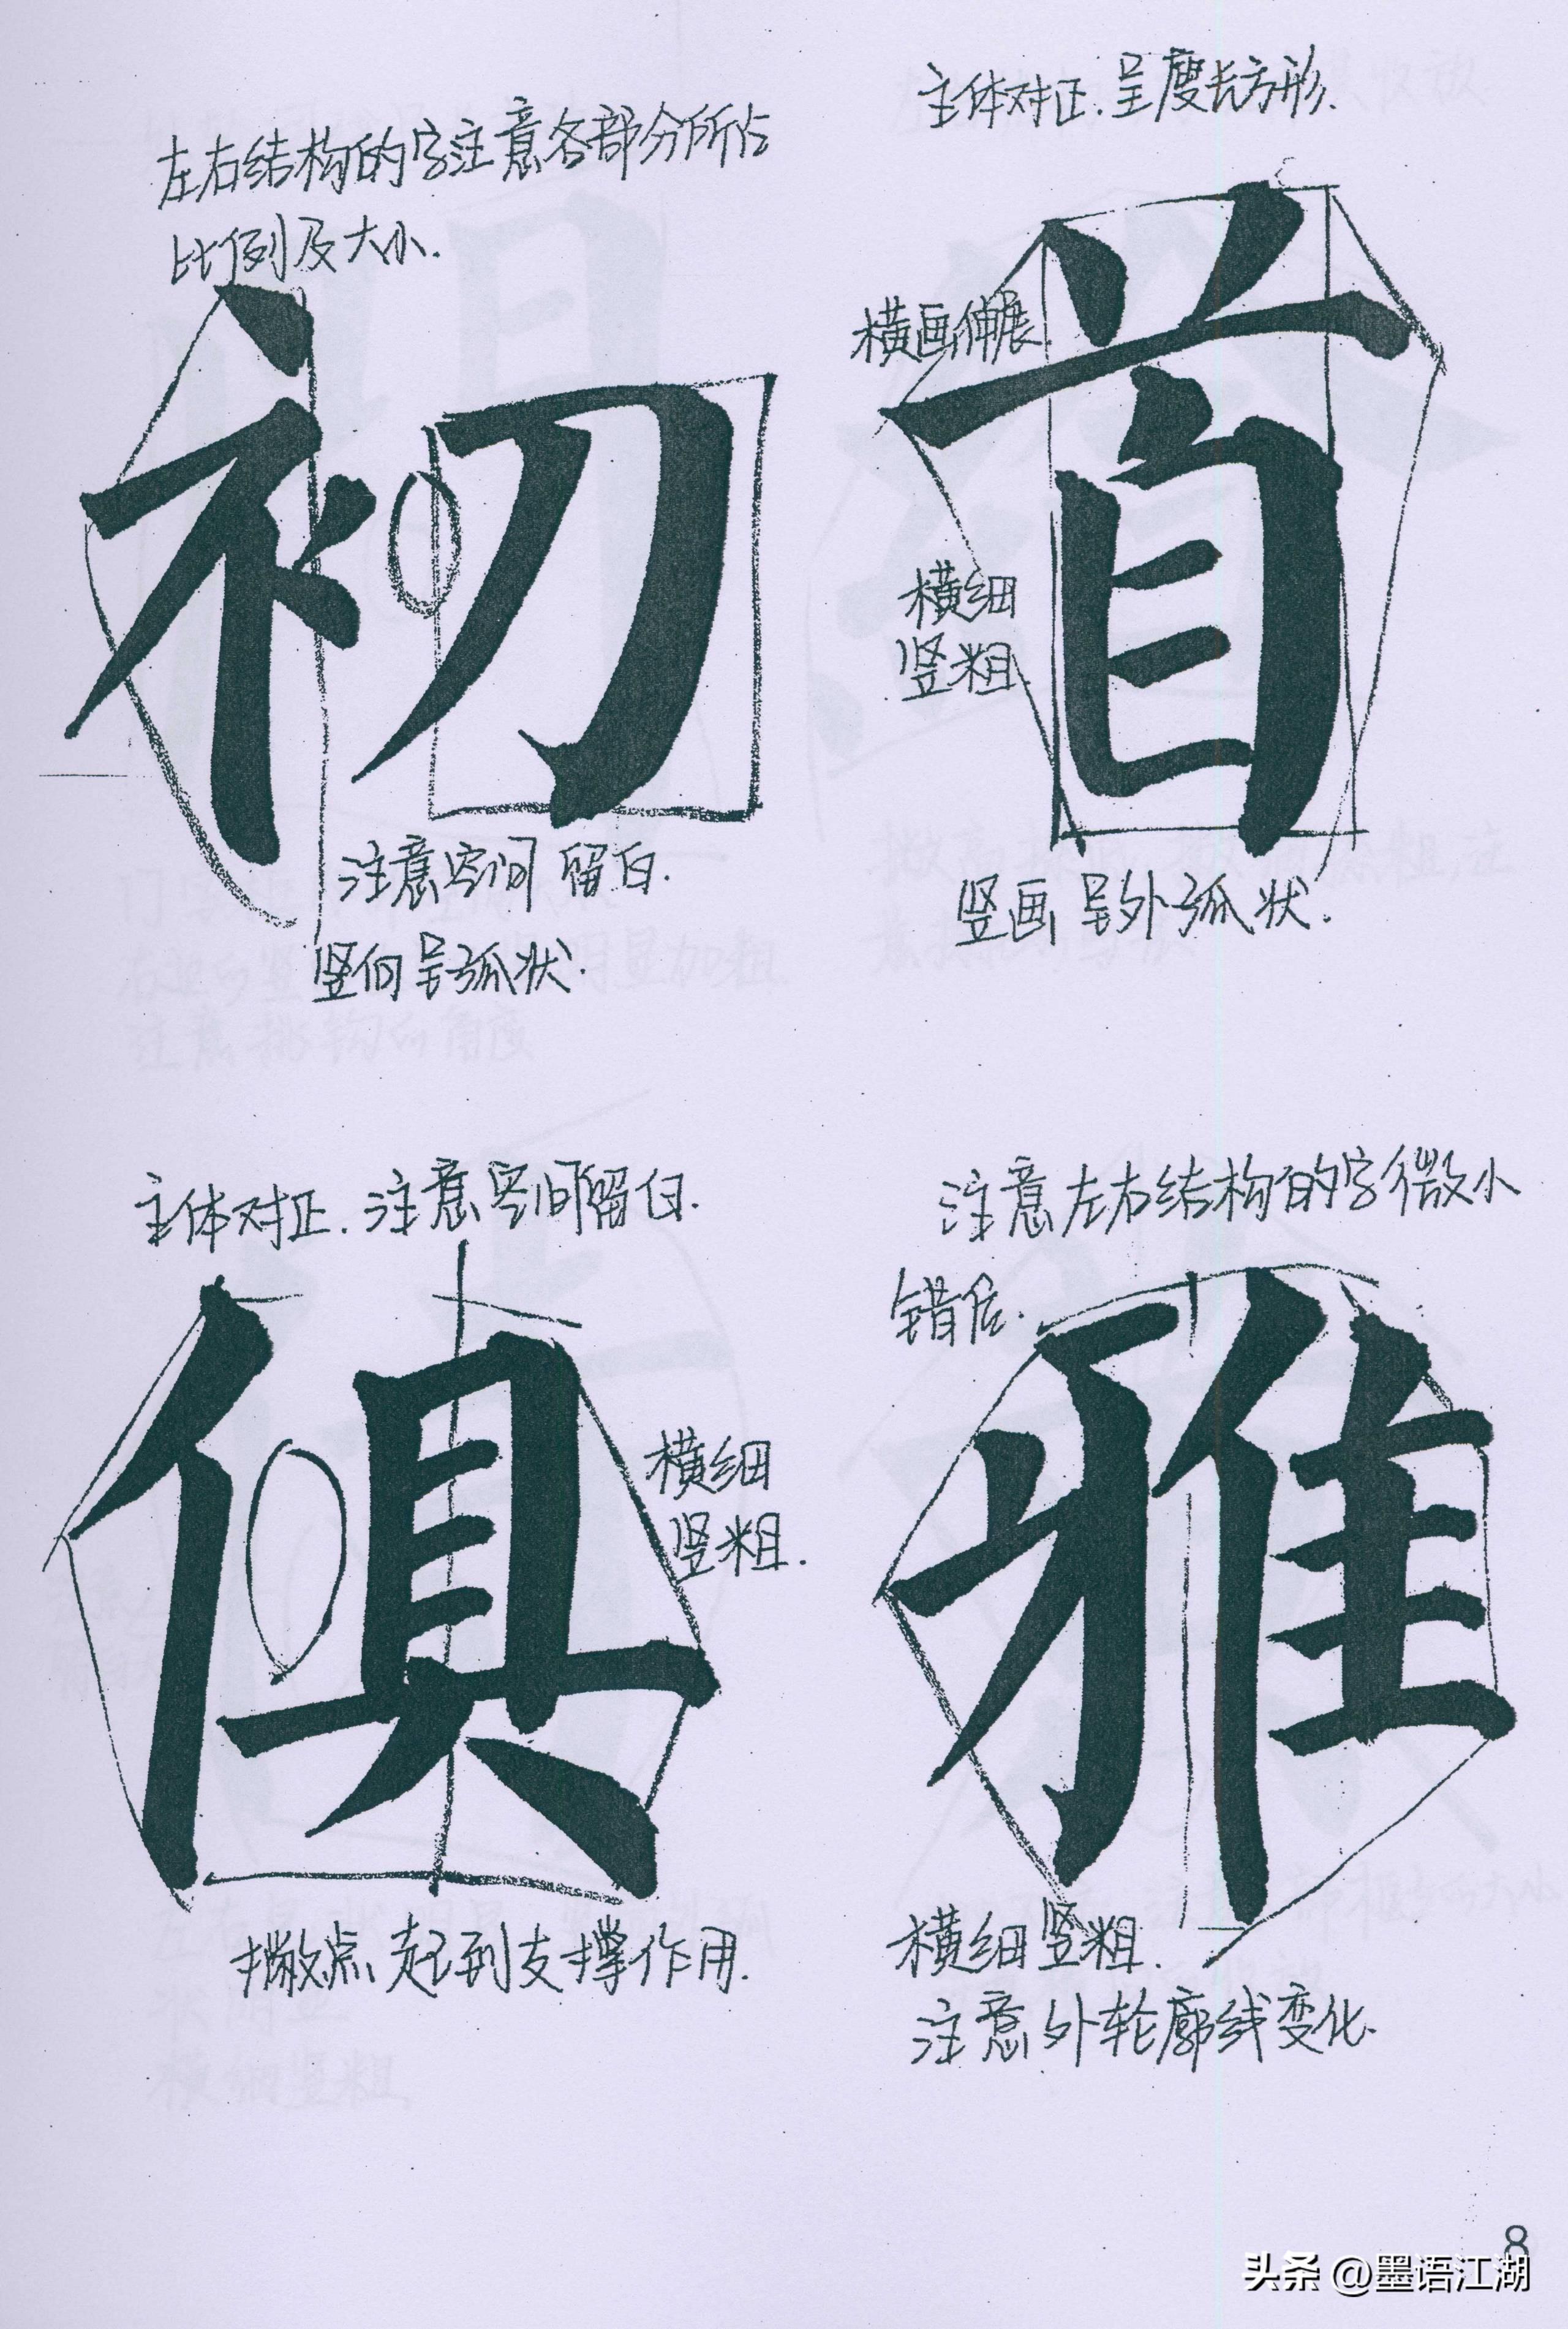 左右结构的字注意各部分所占
比例及大小.
初
注意空间留白.
竖向呈弧状.
主体对正.呈度长方形.
首
横画伸展
横细
竖粗
竖画呈外弧状.
主体对正.注意空间留白.
俱
横细
竖粗.
撇点起到支撑作用.
注意左右结构的字微小
错位.
雅
横细竖粗.
注意外轮廓线变化.
8
头条 @墨语江湖